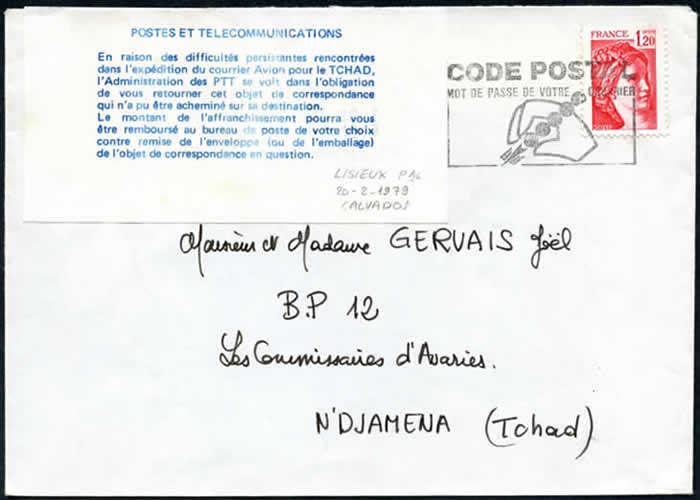 POSTES ET TELECOMMUNICATIONS
En raison des difficultés persistantes rencontrées
dans l'expédition du courrier Avion pour le TCHAD,
l'Administration des PTT se voit dans l'obligation
de vous retourner cet objet de correspondance
qui n'a pu être acheminé sur sa destination.
Le montant de l'affranchissement pourra vous
être remboursé au bureau de poste de votre choix
contre remise de l'enveloppe (ou de l'emballage)
de l'objet de correspondance en question.
LISIEUX
20-2-1979
CALVADOS
FRANCE 1,20
CODE POSTAL
MOT DE PASSE DE VOTRE COURRIER
Monsieur et Madame GERVAIS Joël
B.P 12
Les Commissaires d'Avaries.
N'DJAMENA (Tchad)